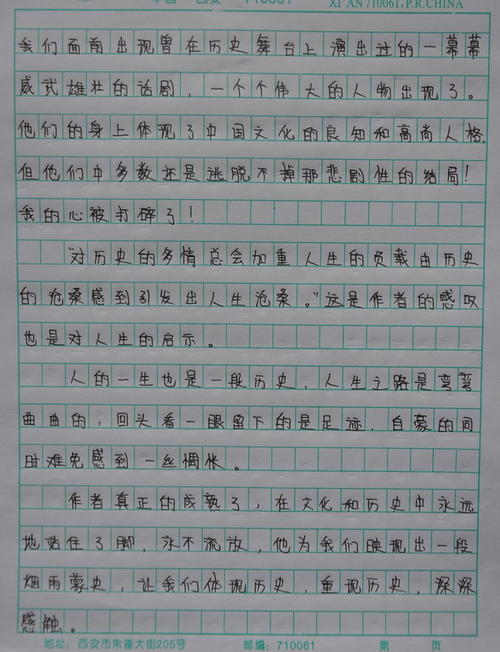 710061
XI'AN 710061,P.R.CHINA
我们面前出现曾在历史舞台上演出过的一幕幕
威武雄壮的话剧，一个个伟大的人物出现了。
他们的身上体现了中国文化的良知和高尚人格，
但他们中多数还是逃脱不掉那悲剧性的结局！
我的心被打碎了！
对历史的多情总会加重人生的负载由历史
的沧桑感到引发出人生沧桑。”这是作者的感叹
也是对人生的启示。
人的一生也是一段历史，人生之路是弯弯
曲曲的，回头看一眼留下的是足迹，自豪的同
时难免感到一丝惆怅。
作者真正的成熟了，在文化和历史中永远
地站住了脚，永不流放，他为我们映现出一段
烟雨蒙史，让我们体现历史，重现历史，深深
感触。
地址：西安市朱雀大街205号 邮编：710061 第 页